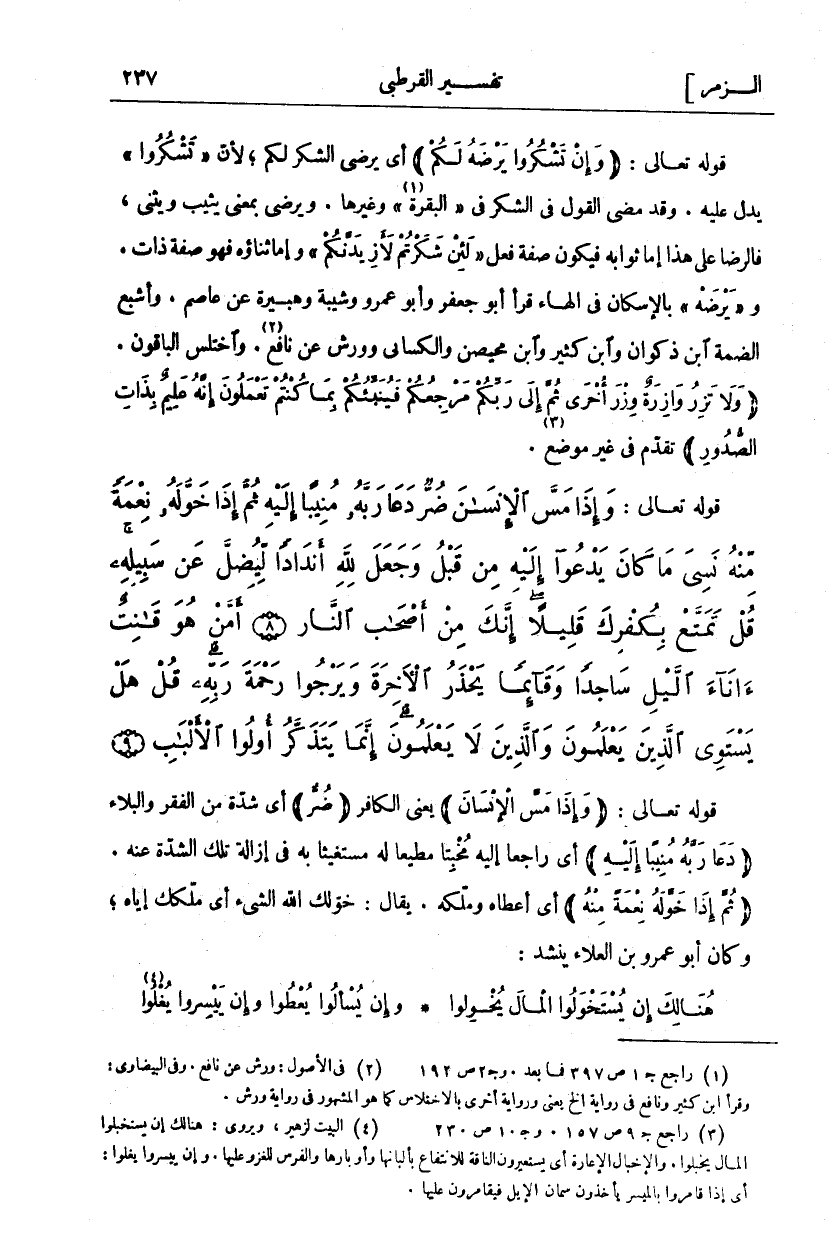 الـــزمر ] تفســـير القرطبى ٢٣٧
قوله تعـالى : ﴿ وَإِنْ تَشْكُرُوا يَرْضَهُ لَـكُمْ ﴾ أى يرضى الشكر لكم ؛ لأن « تَشْكُرُوا »
يدل عليه . وقد مضى القول فى الشكر فى « البقرة (١) » وغيرها . ويرضى بمعنى يثيب ويثنى ،
فالرضا على هذا إما ثوابه فيكون صفة فعل « لَئِنْ شَكَرْتُمْ لَأَزِيدَنَّكُمْ » وإما ثناؤه فهو صفة ذات .
و « يَرْضَهْ » بالإسكان فى الهـاء قرأ أبو جعفر وأبو عمرو وشيبة وهبيرة عن عاصم . وأشبع
الضمة ٱبن ذكوان وٱبن كثير وٱبن محيصن والكسائى وورش عن نافع (٢) . وٱختلس الباقون .
﴿ وَلَا تَزِرُ وَازِرَةٌ وِزْرَ أُخْرَى ثُمَّ إِلَى رَبِّكُمْ مَرْجِعُكُمْ فَيُنَبِّئُكُمْ بِمَا كُنْتُمْ تَعْمَلُونَ إِنَّهُ عَلِيمٌ بِذَاتِ
الصُّدُورِ ﴾ تقدّم فى غير موضع (٣) .
قوله تعـالى : وَإِذَا مَسَّ ٱلْإِنسَـٰنَ ضُرٌّ دَعَا رَبَّهُۥ مُنِيبًا إِلَيْهِ ثُمَّ إِذَا خَوَّلَهُۥ نِعْمَةً
مِّنْهُ نَسِىَ مَا كَانَ يَدْعُوٓا إِلَيْهِ مِن قَبْلُ وَجَعَلَ لِلَّهِ أَندَادًا لِّيُضِلَّ عَن سَبِيلِهِۦ ۚ
قُلْ تَمَتَّعْ بِكُفْرِكَ قَلِيلًا ۖ إِنَّكَ مِنْ أَصْحَـٰبِ ٱلنَّارِ ﴿٨﴾ أَمَّنْ هُوَ قَـٰنِتٌ
ءَانَآءَ ٱلَّيْلِ سَاجِدًا وَقَآئِمًا يَحْذَرُ ٱلْآخِرَةَ وَيَرْجُوا رَحْمَةَ رَبِّهِۦ ۗ قُلْ هَلْ
يَسْتَوِى ٱلَّذِينَ يَعْلَمُونَ وَٱلَّذِينَ لَا يَعْلَمُونَ ۗ إِنَّمَا يَتَذَكَّرُ أُولُوا ٱلْأَلْبَـٰبِ ﴿٩﴾
قوله تعـالى : ﴿ وَإِذَا مَسَّ الْإِنْسَانَ ﴾ يعنى الكافر ﴿ ضُرٌّ ﴾ أى شدّة من الفقر والبلاء
﴿ دَعَا رَبَّهُ مُنِيبًا إِلَيْـهِ ﴾ أى راجعا إليه مُخْبِتا مطيعا له مستغيثا به فى إزالة تلك الشدّة عنه .
﴿ ثُمَّ إِذَا خَوَّلَهُ نِعْمَةً مِنْهُ ﴾ أى أعطاه وملّكه . يقال : خوّلك الله الشىء أى ملّكك إياه ؛
وكان أبو عمرو بن العلاء ينشد :
هُنَـالِكَ إِن يُسْتَخْوَلُوا الْمَـالَ يُخْـوِلوا * وإِن يُسألُوا يُعْطُوا وإِن يَيْسِروا يُغْلُوا (٤)
(١) راجع جـ ١ ص ٣٩٧ فـا بعد . وجـ ٢ ص ١٩٢ (٢) فى الأصول : ورش عن نافع . وفى البيضاوى :
وقرأ ابن كثير ونافع فى رواية الخ يعنى ورواية أخرى بالاختلاس كما هو المشهور فى رواية ورش .
(٣) راجع جـ ٩ ص ١٥٧ . وجـ ١٠ ص ٢٣٠ (٤) البيت لزهير ، ويروى : هنالك إن يستخبلوا
المـال يخبلوا . والإخبال الإعارة أى يستعيرون الناقة للانتفاع بألبانها وأوبارها والفرس للغزو عليها . وإن ييسروا يغلوا :
أى إذا قامروا بالميسر يأخذون سمان الإبل فيقامرون عليها .